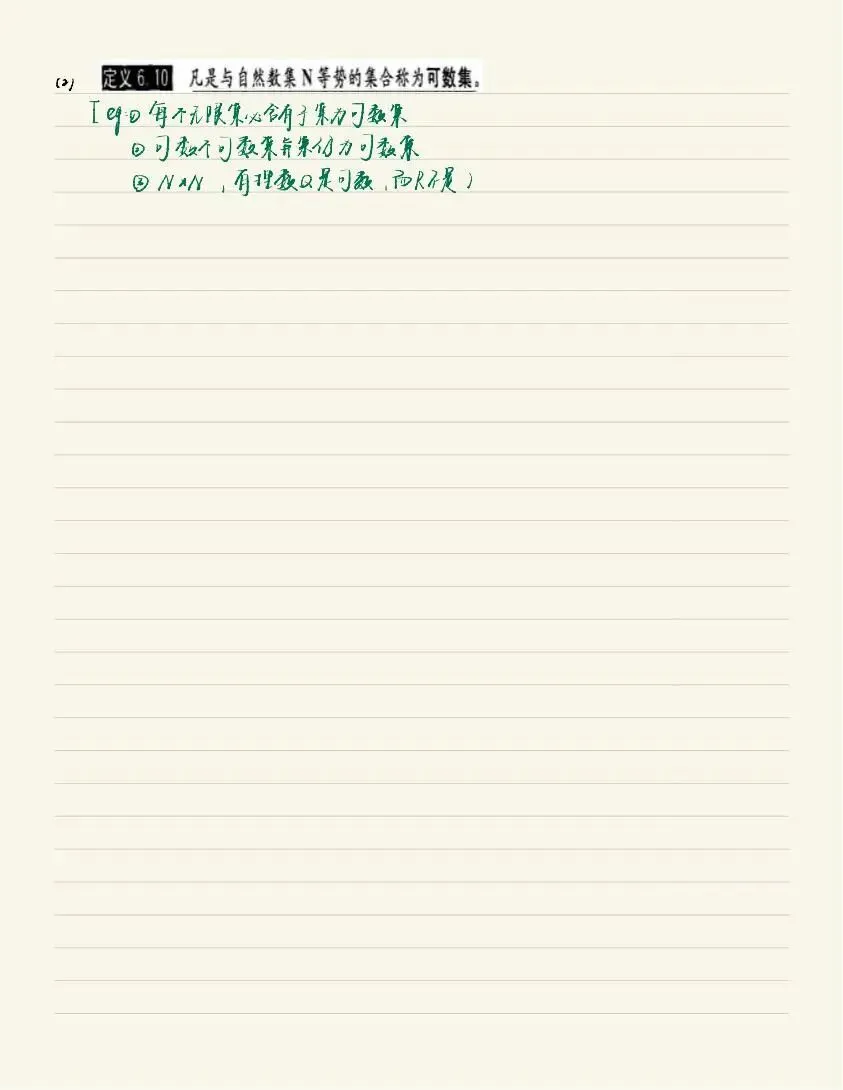 (2) 定义 6.10 凡是与自然数集 N 等势的集合称为可数集。
[eg:① 每个无限集必含有子集为可数集
② 可数个可数集并集仍为可数集
③ N×N , 有理数Q是可数,而R不是)